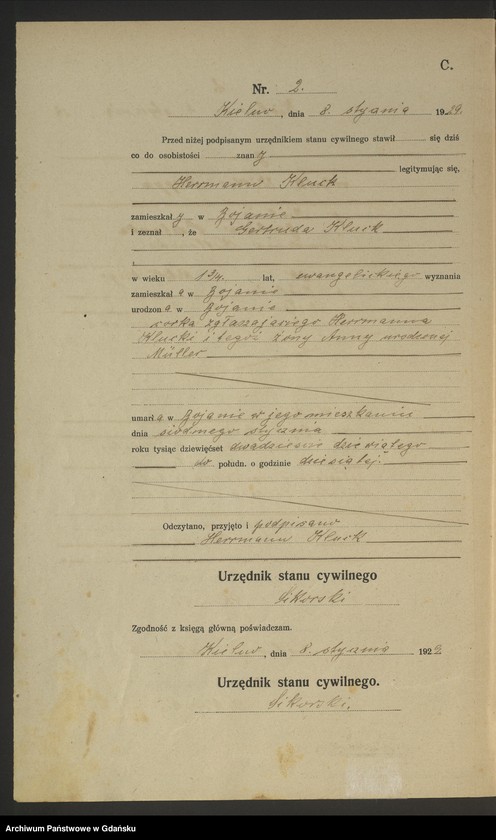 C.
Nr. 2.
Kielno, dnia 8. stycznia 1929.
Przed niżej podpisanym urzędnikiem stanu cywilnego stawił się dziś
co do osobistości znany
legitymując się,
Herrmann Kluck
zamieszkały w Bojanie
i zeznał, że Gertruda Kluck
w wieku 1 3/4 lat, ewangelickiego wyznania
zamieszkała w Bojanie
urodzona w Bojanie
córka zgłaszającego Herrmanna
Klucki i tegoż żony Anny urodzonej
Müller
umarła w Bojanie w jego mieszkaniu
dnia siódmego stycznia
roku tysiąc dziewięćset dwadzieścia dziewiątego
połudn. o godzinie dziesiątej.
Odczytano, przyjęto i podpisano
Herrmann Kluck
Urzędnik stanu cywilnego
Sikorski
Zgodność z księgą główną poświadczam.
Kielno, dnia 8. stycznia 1929
Urzędnik stanu cywilnego.
Sikorski.
Archiwum Państwowe w Gdańsku